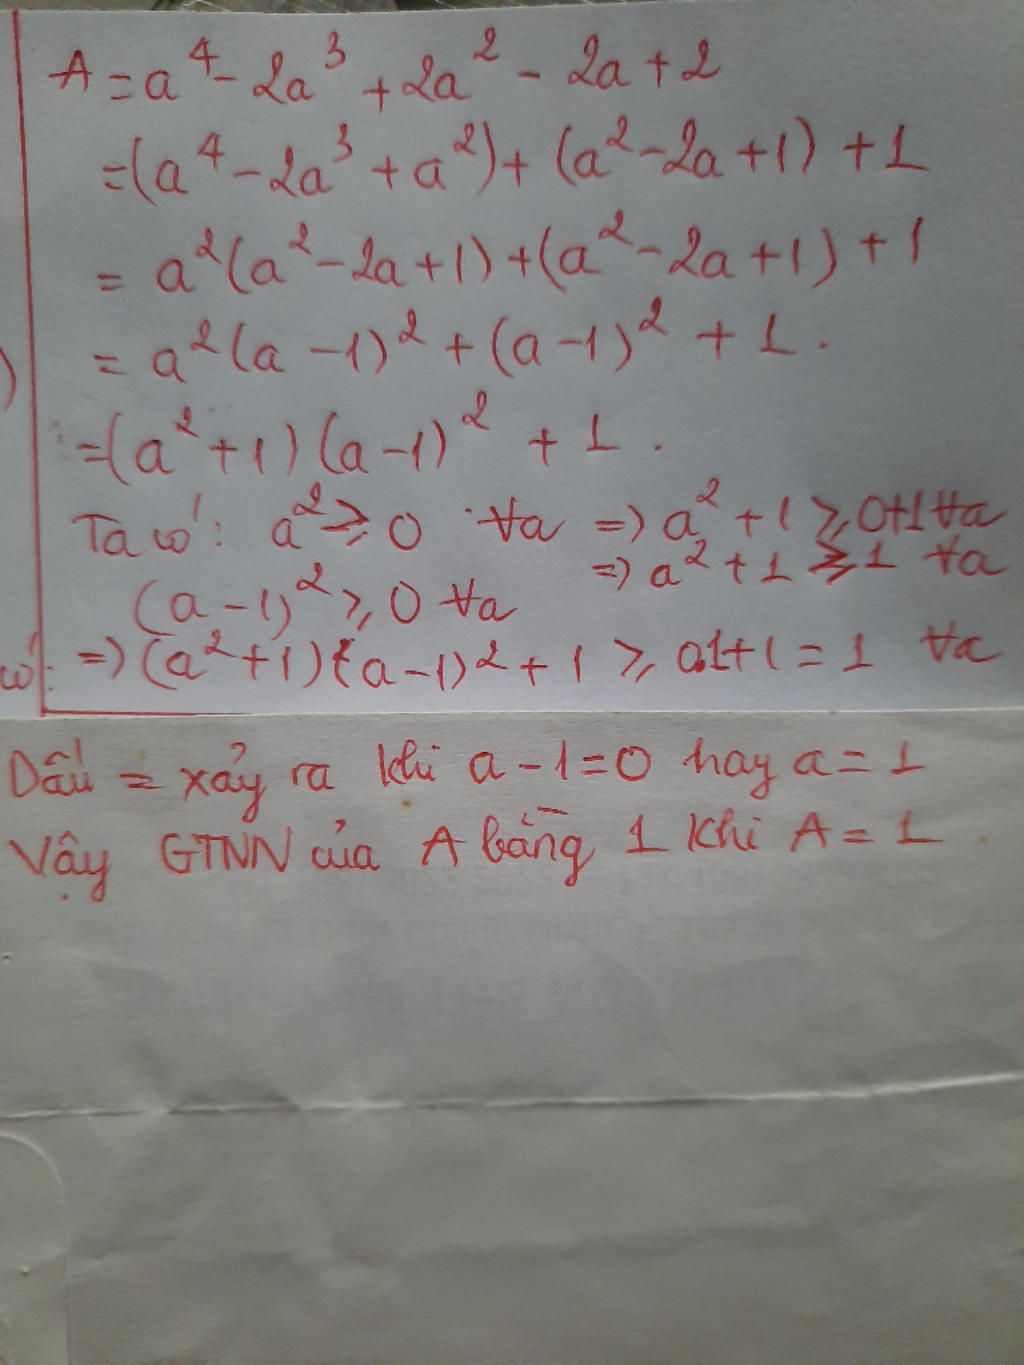 A = a⁴ - 2a³ + 2a² - 2a + 2
= (a⁴ - 2a³ + a²) + (a² - 2a + 1) + 1
= a²(a² - 2a + 1) + (a² - 2a + 1) + 1
= a²(a - 1)² + (a - 1)² + 1.
= (a² + 1)(a - 1)² + 1.
Ta có: a² ≥ 0 ∀a => a² + 1 ≥ 0+1 ∀a
=> a² + 1 ≥ 1 ∀a
(a - 1)² ≥ 0 ∀a
có: => (a² + 1)(a - 1)² + 1 ≥ 0.1 + 1 = 1 ∀a
Dấu = xảy ra khi a - 1 = 0 hay a = 1
Vậy GTNN của A bằng 1 khi A = 1